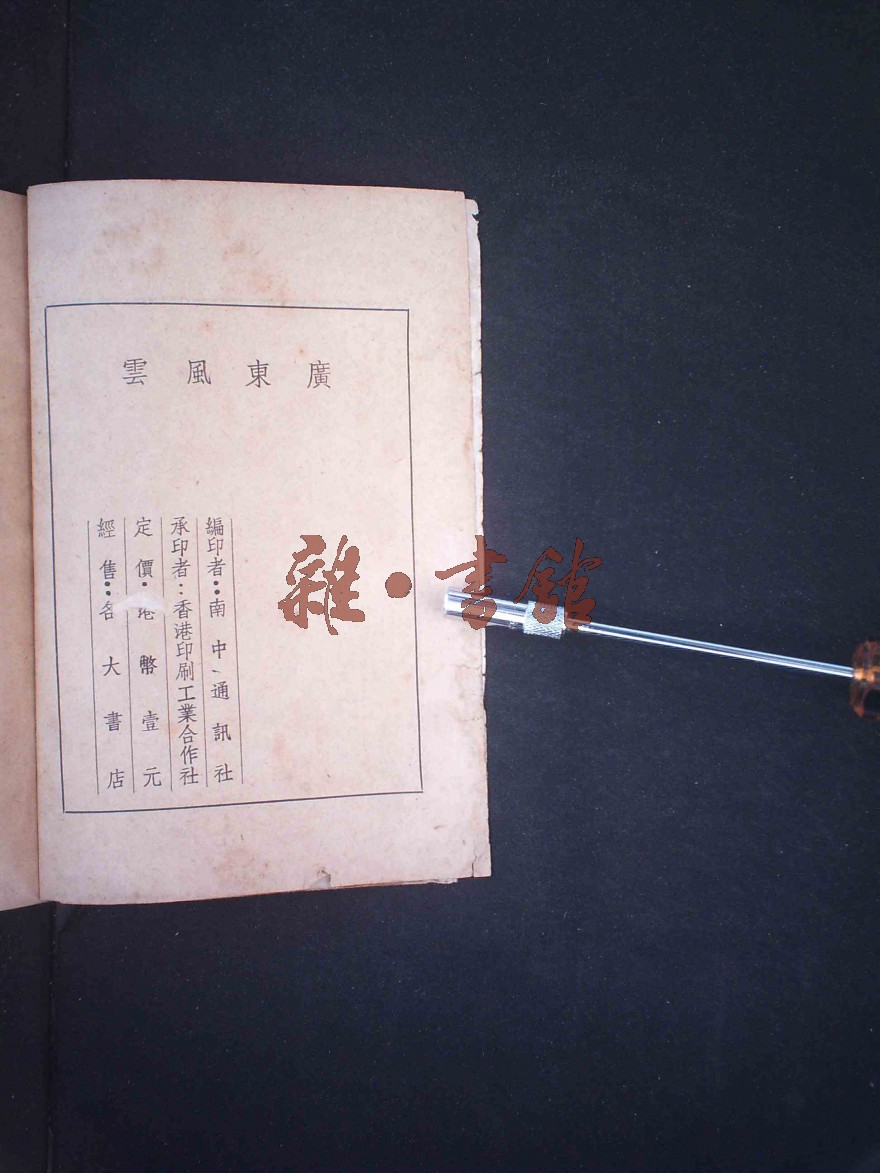 廣東風雲
編印者：南中通訊社
承印者：香港印刷工業合作社
定價：港幣壹元
經售：各大書店
雜·書館